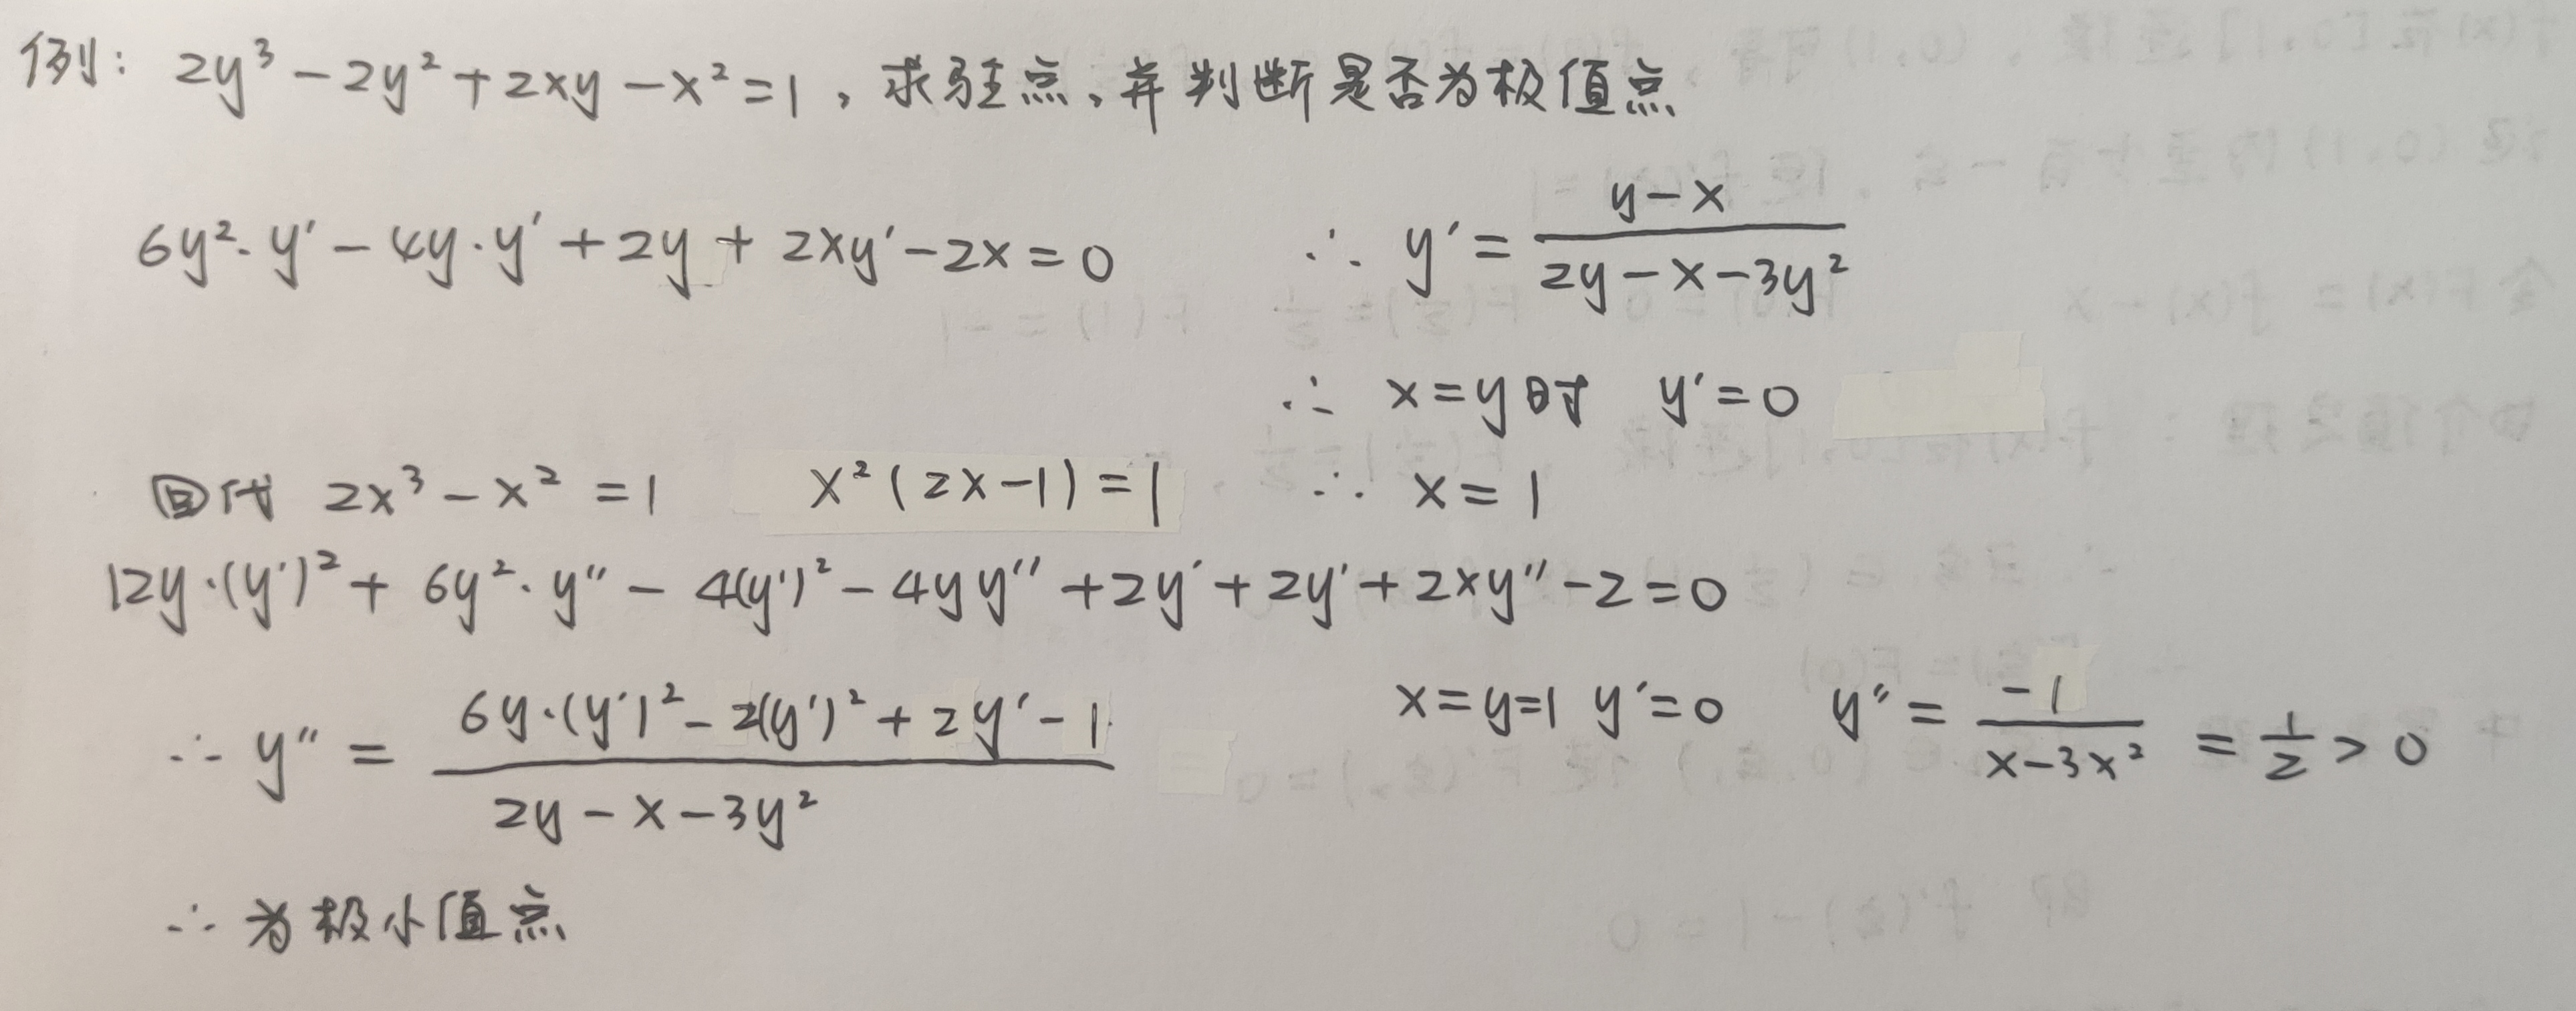 例: 2y³-2y²+2xy-x²=1, 求驻点, 并判断是否为极值点
6y²·y′-4y·y′+2y+2xy′-2x=0 ∴ y′=\frac{y-x}{2y-x-3y²}
∴ x=y时 y′=0
回代 2x³-x²=1 x²(2x-1)=1 ∴ x=1
12y·(y′)²+6y²·y″-4(y′)²-4yy″+2y′+2y′+2xy″-2=0
∴ y″=\frac{6y·(y′)²-2(y′)²+2y′-1}{2y-x-3y²} x=y=1 y′=0 y″=\frac{-1}{x-3x²}=\frac{1}{2}>0
∴ 为极小值点